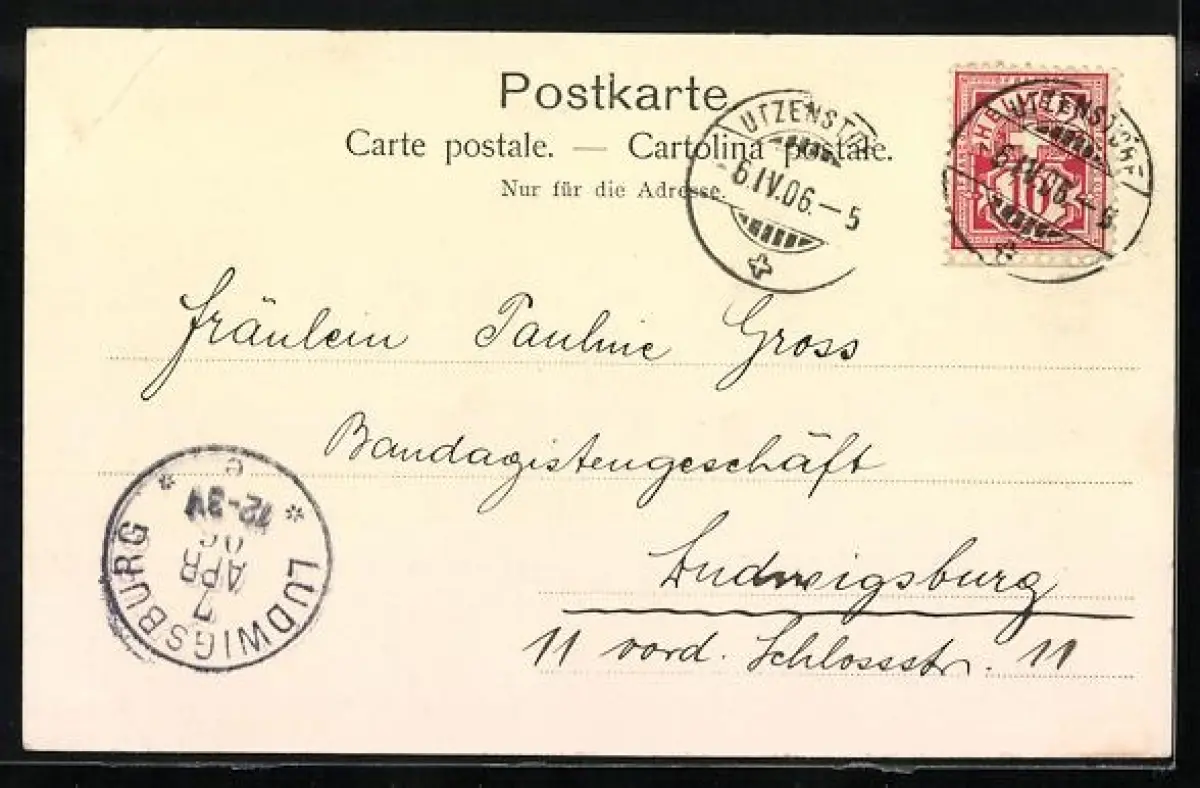 Postkarte
Carte postale. — Cartolina postale.
Nur für die Adresse.
UTZENSTORF
6.IV.06.–5
UTZENSTORF
6.IV.06.–5
10
Fräulein Pauline Gross
Bandagistengeschäft
Ludwigsburg
11 vord. Schlossstr. 11
LUDWIGSBURG
7
APR
06
12-3N
c